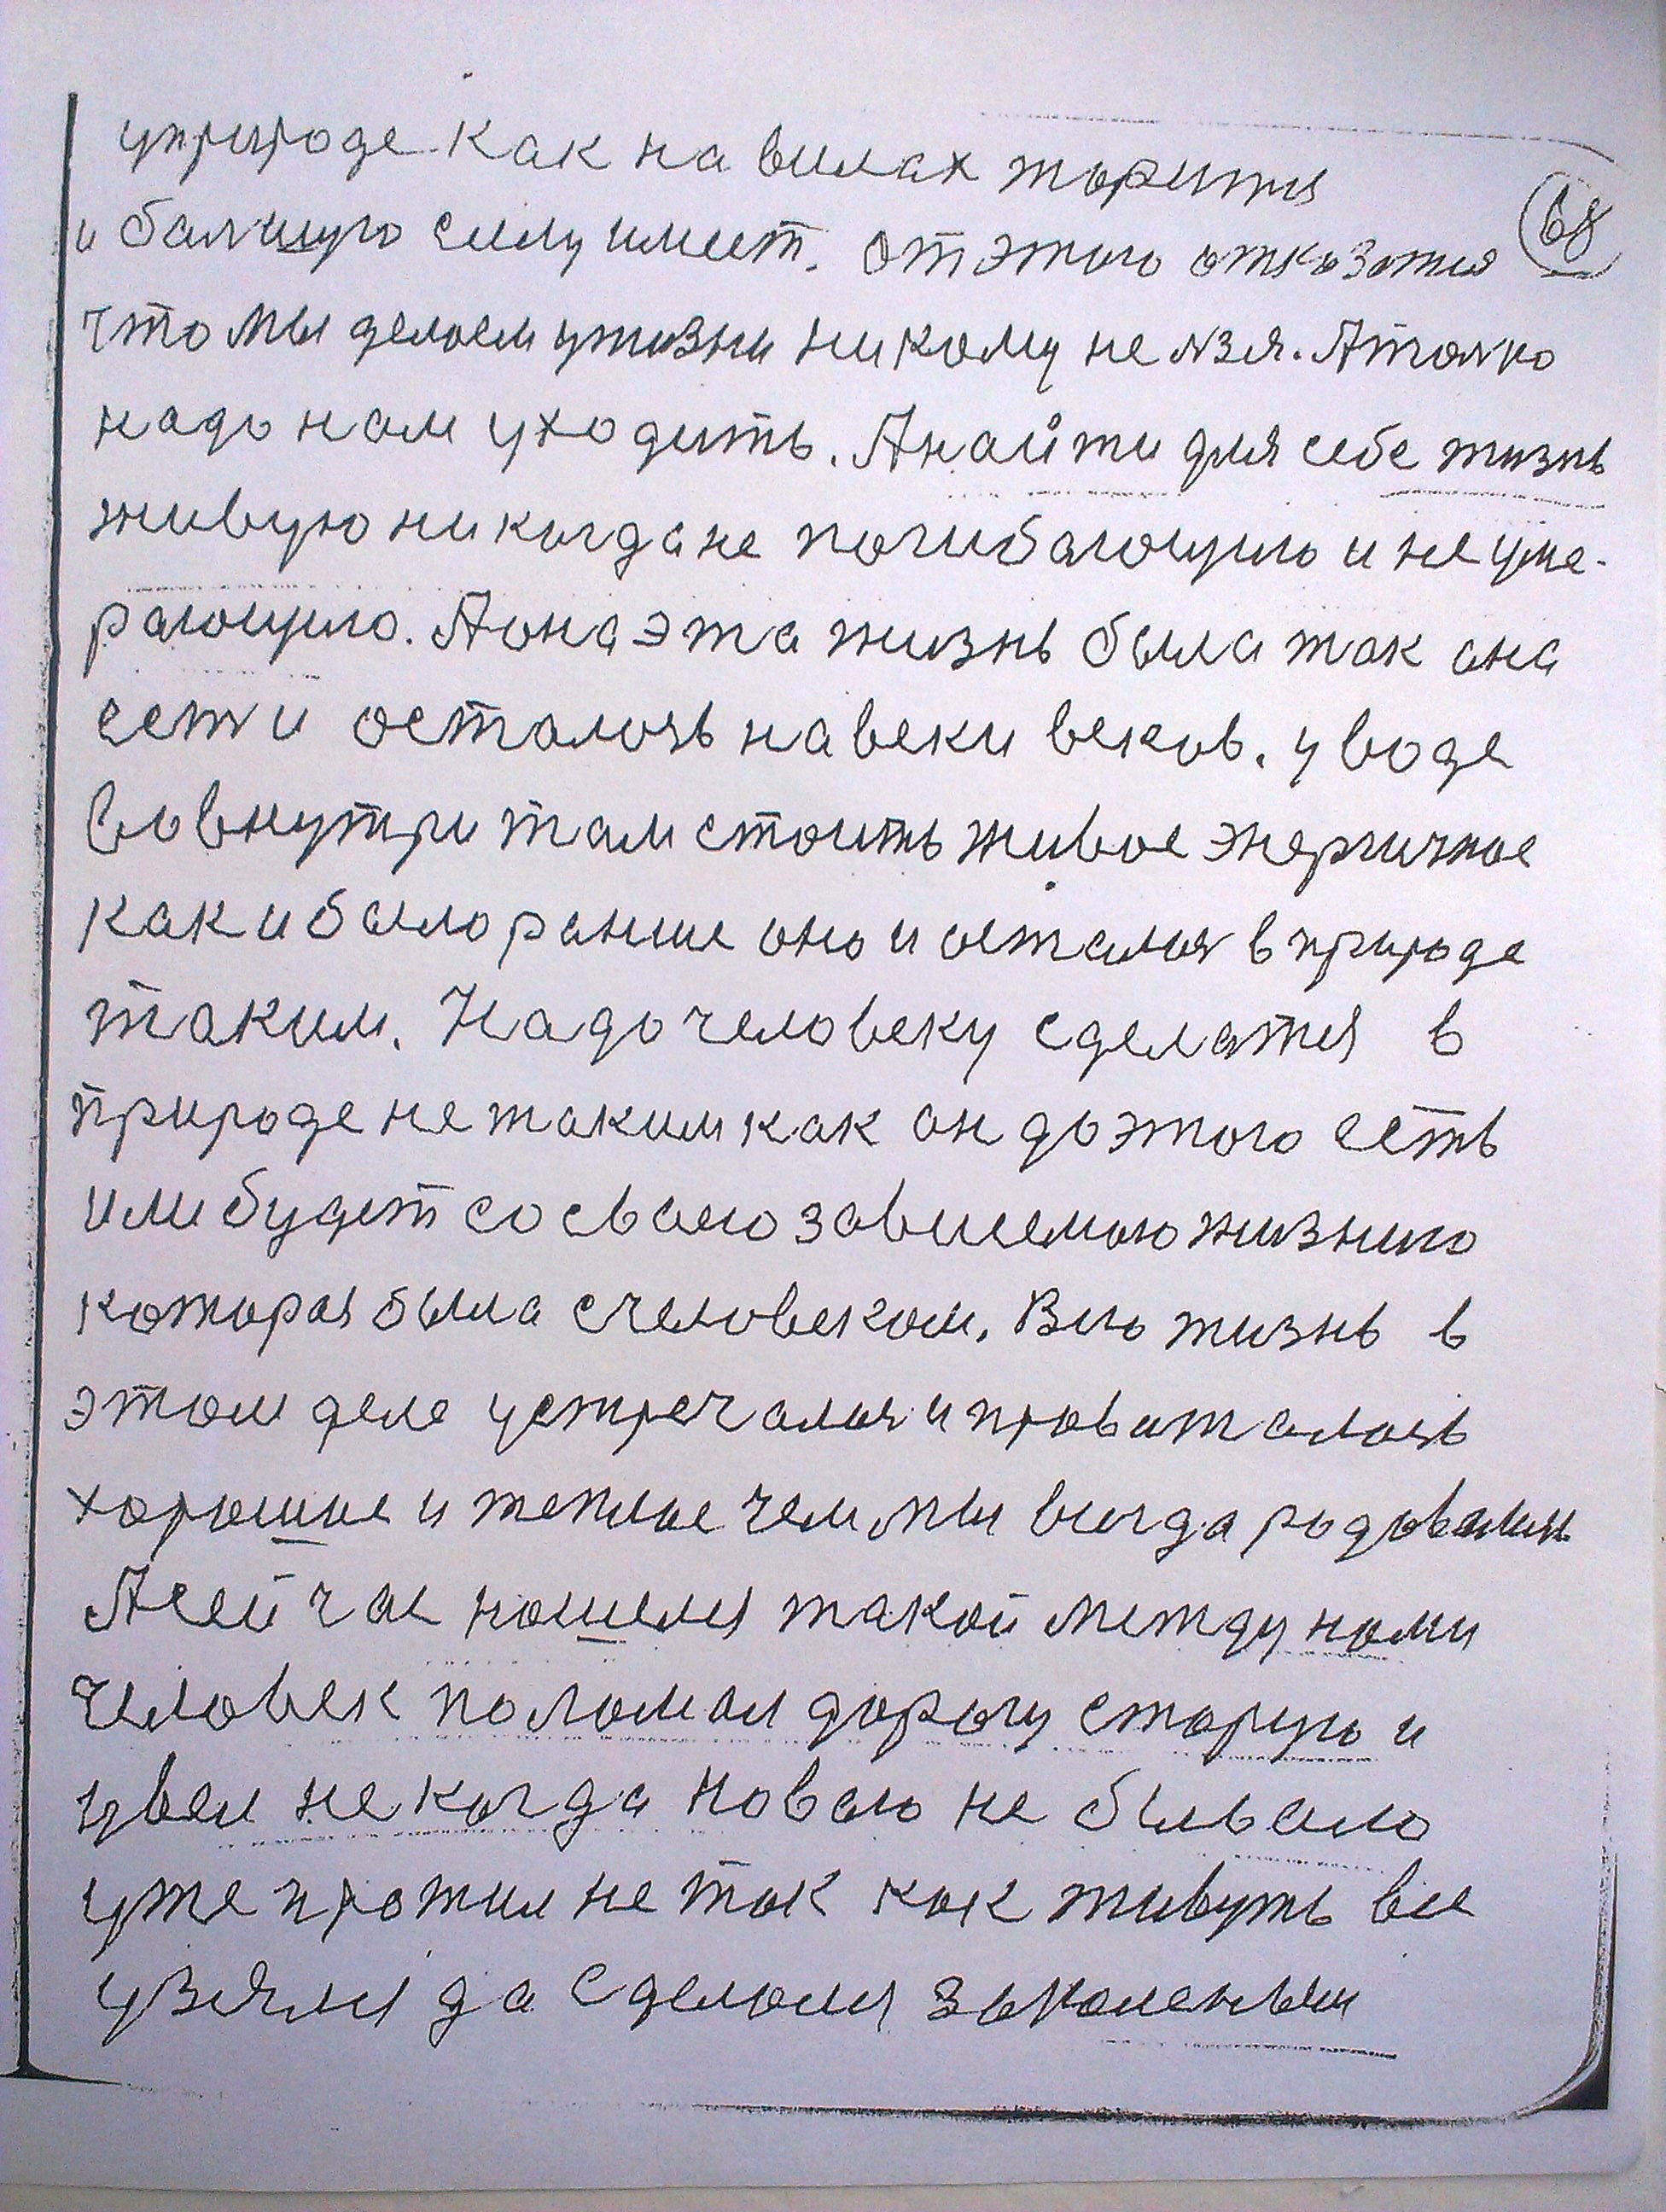 уприроде как на вилах торится
68
и балшую силу имеет. От этого отказатся
что мы делаем ужизни никому не лзя. Атолко
надо нам уходить. Анайти для себе жизнь
живую никогдане погибающую и не уме-
рающую. Аона эта жизнь была так она
есть и осталось навеки веков. у воде
вовнутри там стоить живое энергичное
как и было ранше оно и осталося в природе
таким. Надо человеку сделатся в
природе не таким как он до этого есть
или будет со сваею зависемаю жизнию
которая была счеловеком. Всю жизнь в
этом деле устречалося и проважалось
хорошое и теплое чем мы всегда радовались
Асейчас нашелся такой между нами
человек поломал дорогу старую и
увел не когда новаю не бывало
уже прожил не так как живуть все
узялся да сделался закаленным